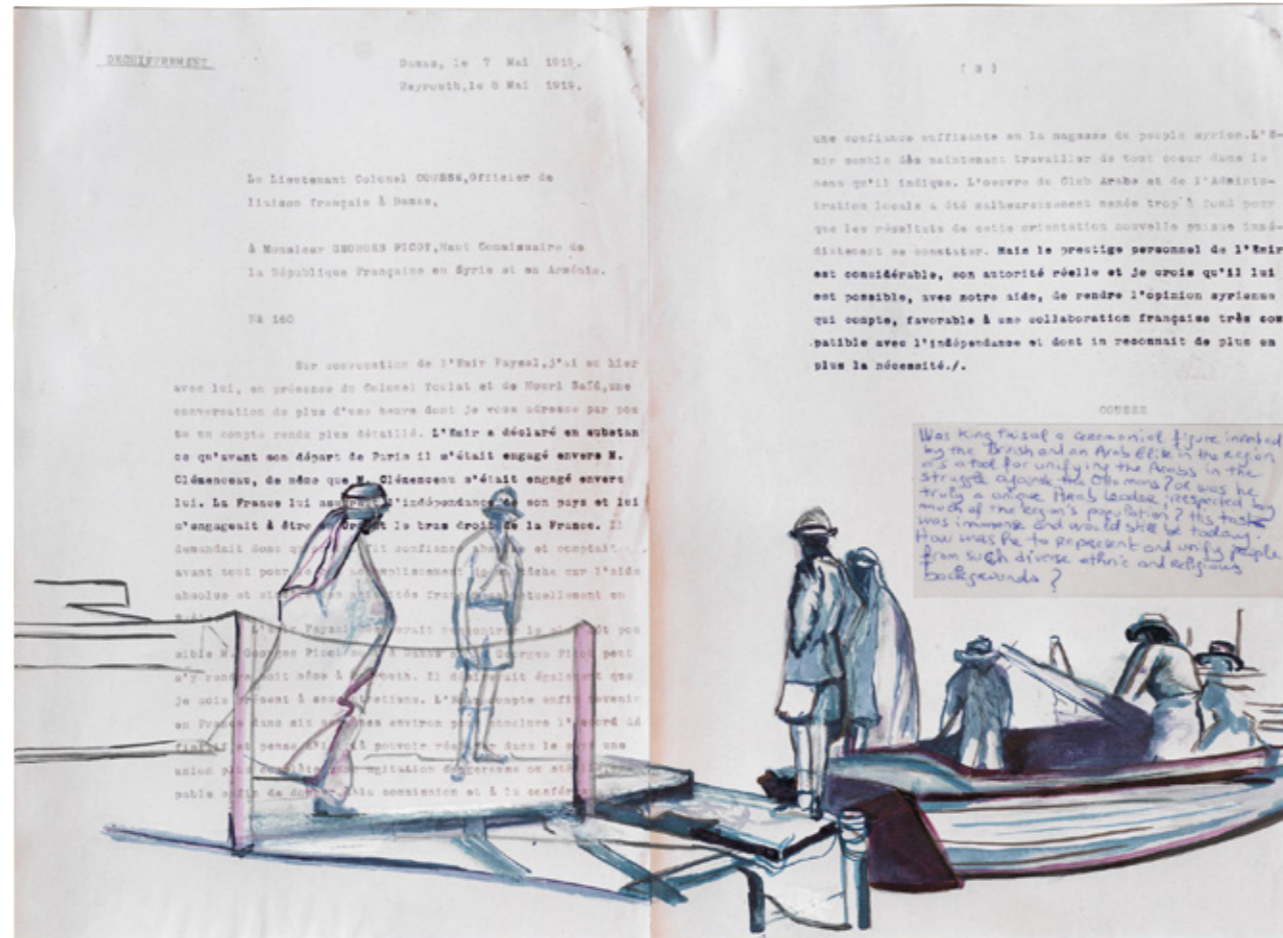 DECHIFFREMENT
Damas, le 7 Mai 1919.
Beyrouth,le 8 Mai 1919.
Le Lieutenant Colonel COUSSE,Officier de
liaison français à Damas,
à Monsieur GEORGES PICOT,Haut Commissaire de
la République Française en Syrie et en Arménie.
N& 160
Sur convocation de l'Emir Faysal,j'ai eu hier
avec lui, en présence du Colonel Toulat et de Nouri Saïd,une
conversation de plus d'une heure dont je vous adresse par pos
te un compte rendu plus détaillé. L'Emir a déclaré en substan
ce qu'avant son départ de Paris il s'était engagé envers M.
Clémenceau, de même que M. Clémenceau s'était engagé envers
lui. La France lui l'indépendance de son pays et lui
s'engageait à être le bras droit de la France. Il
demandait donc confiance et comptait
avant tout pour accomplissement sur l'aide
absolue et actuellement en
L'Emir Faysal rencontrer le
sible M. Georges Picot à Damas Georges Picot peut
s'y rendre soit même à Il également que
je sois présent à entretiens. L' compte enfin revenir
en France dans six environ conclure l'accord dé
et pense pouvoir dans le une
union agitation dangereuse ou
pable enfin de à la commission et à la
( 2 )
une confiance suffisante en la sagesse du peuple syrien.L'E-
mir semble dès maintenant travailler de tout coeur dans le
sens qu'il indique. L'oeuvre du Club Arabe et de l'Adminis-
tration locale a été malheureusement menée trop à fond pour
que les résultats de cette orientation nouvelle puisse immé-
diatement se constater. Mais le prestige personnel de l'Emir
est considérable, son autorité réelle et je crois qu'il lui
est possible, avec notre aide, de rendre l'opinion syrienne
qui compte, favorable à une collaboration française très com
patible avec l'indépendance et dont in reconnait de plus en
plus la nécessité./.
COUSSE
Was King Faisal a ceremonial figure invented
by the British and an Arab Elite in the region
as a tool for unifying the Arabs in the
struggle against the Ottomans? or was he
truly a unique Arab leader respected by
much of the region's population? His task
was immense and would still be today.
How was he to represent and unify people
from such diverse ethnic and religious
backgrounds?